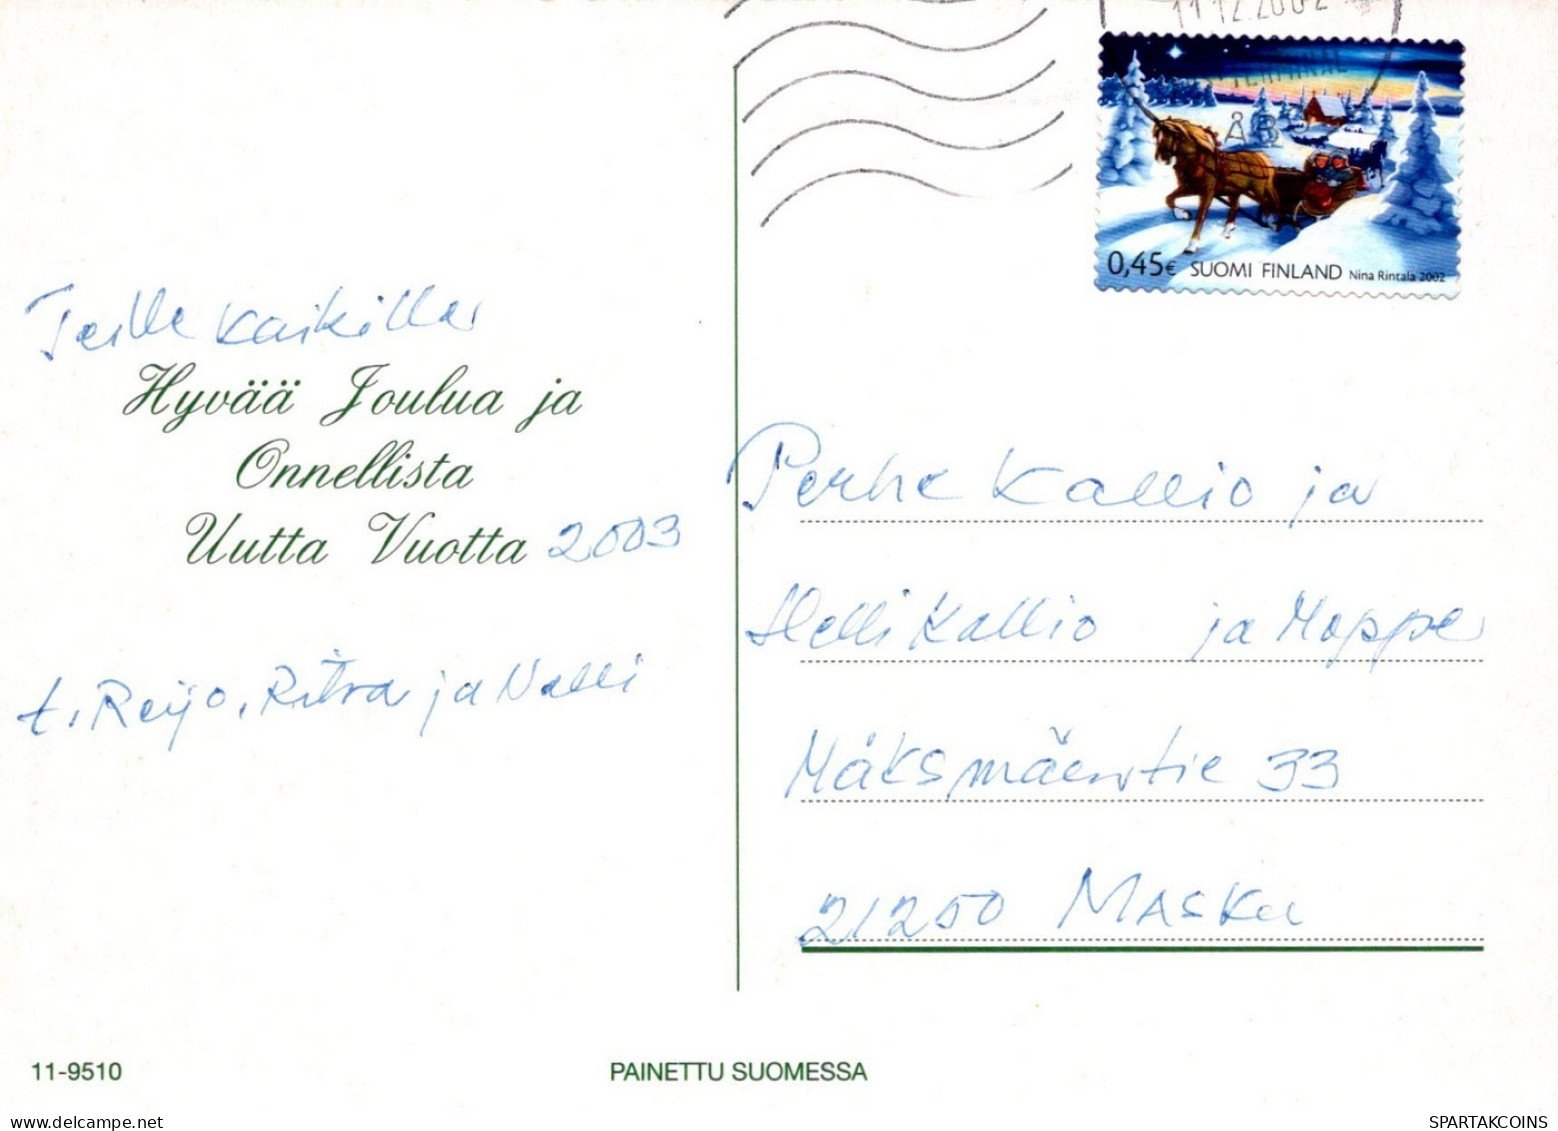 11.12.2002
TERMINAL
ÅB
0,45€ SUOMI FINLAND Nina Rintala 2002
Teille kaikille
Hyvää Joulua ja
Onnellista
Uutta Vuotta 2003
t. Reijo, Ritva ja Nalli
Perhe Kallio ja
Helli Kallio ja Moppe
Mäksmäentie 33
21250 MASKU
11-9510
PAINETTU SUOMESSA
SPARTAKCOINS